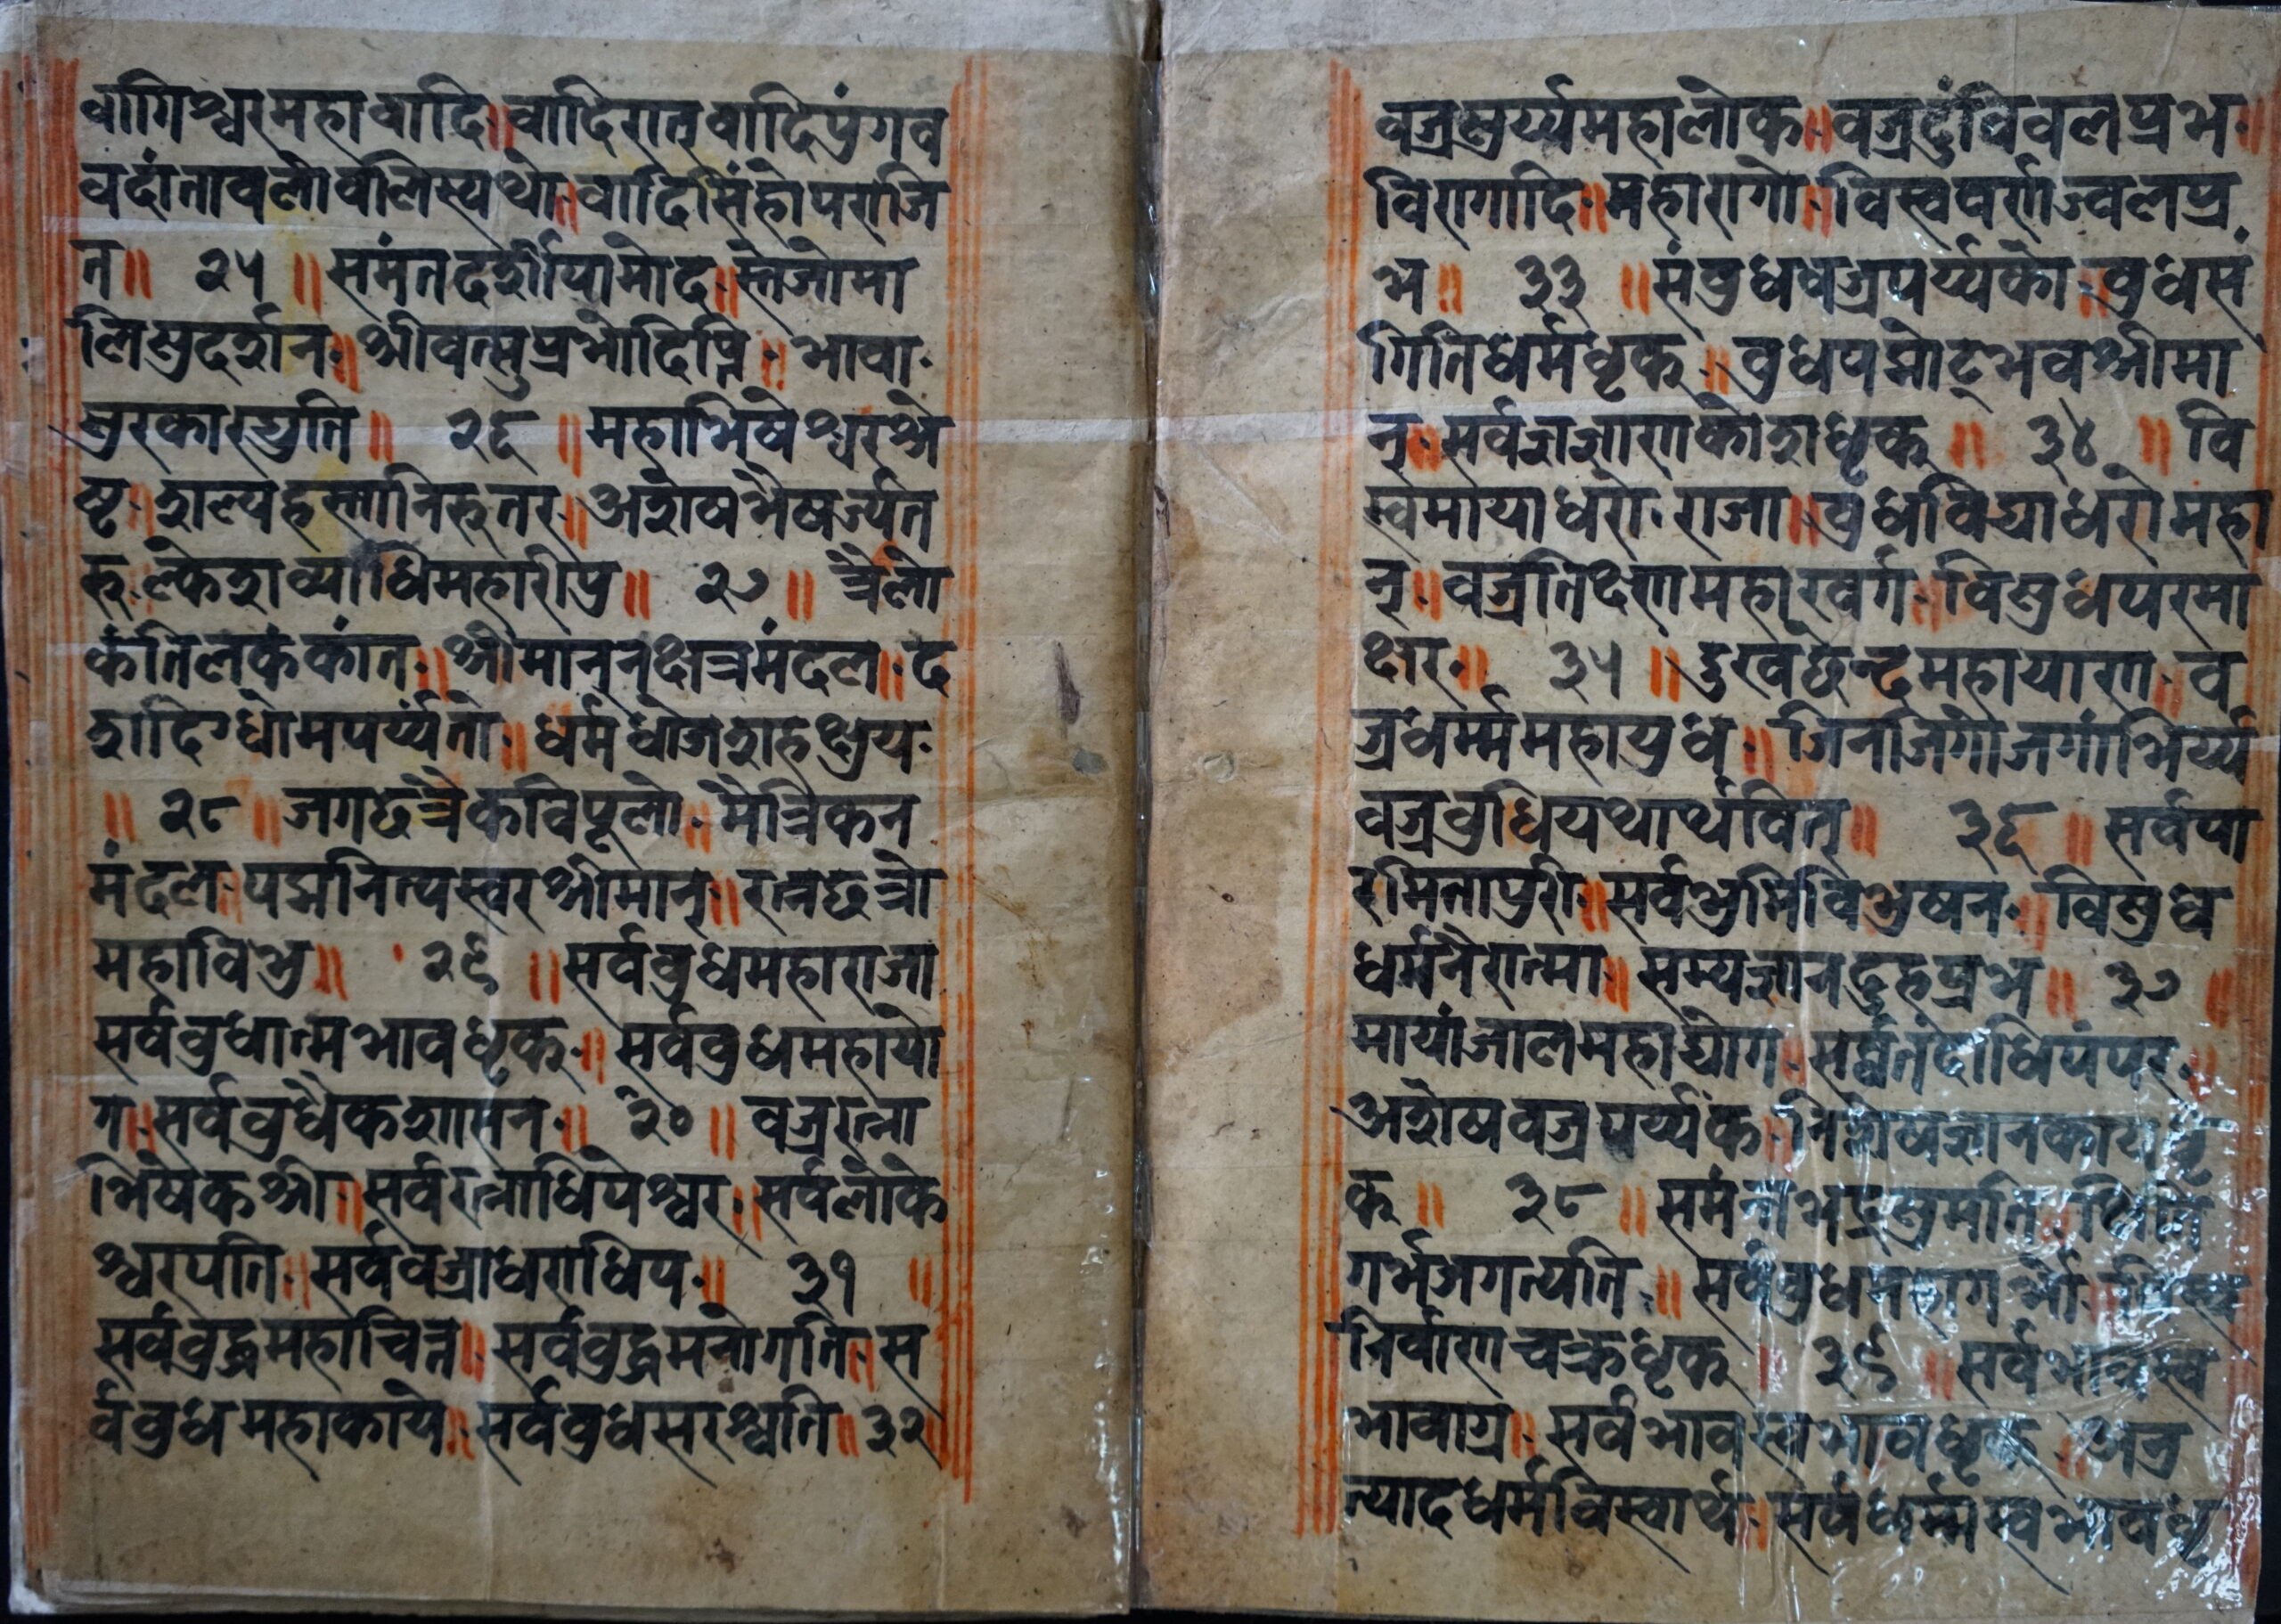 वागिश्वरमहावादि॥वादिरात्वादिपुंगव
वदांतावलोवलिस्यथो॥वादिसिंहोपराजि
त॥ २५ ॥समंतदर्शीयामोद॥स्तेजोमा
लिसुदर्शन॥श्रीवत्सुप्रभोदिप्ति॥भावा
सुरकारद्युति॥ २६ ॥महाभिषेश्वरश्रे
ष्ट॥शल्यहर्तानिरुतर॥अशेषभैषर्ज्यत
रु॥ल्केशव्याधिमहारीपु॥ २७ ॥त्रैलो
कंतिलकंकांत॥श्रीमान्नक्षत्रमंदल॥द
शदिग्धोमपर्य्यंतो॥धर्मधोजशहक्षुय
॥ २८ ॥जगछेत्रैकविपूलो॥मैत्रिकन
मंदल॥पद्मनित्यस्वरश्रीमान्॥रत्नछत्रो
महाविभु॥ २९ ॥सर्वबुधमहाराजा
सर्वबुधात्मभावधृक्॥सर्वबुधमहायो
ग॥सर्वबुधैकशासन॥ ३० ॥वज्ररत्ना
भिषेकश्री॥सर्वरत्नाधिपेश्वर॥सर्वलोके
श्वरपति॥सर्ववज्राधराधिप॥ ३१ ॥
सर्वबुद्धमहाचित्त॥सर्वबुद्धमनोगति॥स
र्वबुधमहाकाये॥सर्वबुधसरश्वति॥३२॥
वज्रसुर्य्यमहालोक॥वज्रदुंविवलप्रभ॥
विरागादि॥महारागो॥विस्ववर्णोज्वलप्र
भ॥ ३३ ॥संबुधवज्रपर्य्यको॥बुधसं
गितिधर्मधृक्॥बुधपद्मोद्भवश्रीमा
न्॥सर्वज्ञज्ञाणकोशधृक्॥ ३४ ॥वि
स्वमायाधरो॥राजा॥बुधविद्याधरोमहा
न्॥वज्रतिक्ष्णमहाखर्ग॥विसुधपरमा
क्षर॥ ३५ ॥दुखछेन्दमहायाण॥व
ज्रधर्म्ममहायुध॥जिनजिगोजगांभिर्य्य
वज्रबुधियथार्थवित्॥ ३६ ॥सर्वपा
रमितापुरी॥सर्वभुमिविभुषन॥विसुध
धर्मनैरात्मा॥सम्यज्ञानदुहप्रभ॥ ३७ ॥
मायांजालमहाद्योग॥सर्व्वतंदाधिपंपर॥
अशेषवज्रपर्य्यंक॥निशेषज्ञानकायधृ
क्॥ ३८ ॥समंतभद्रसुमति॥क्षिति
गर्भजगत्पति॥सर्वबुधमहागर्भो॥
निर्वाणचक्रधृक् ३९ ॥सर्वभावस्व
भावाग्र॥सर्वभावस्वभावधृक्॥अनु
त्यादधर्मविस्वार्थ॥सर्वधर्म्मस्वभावधृ